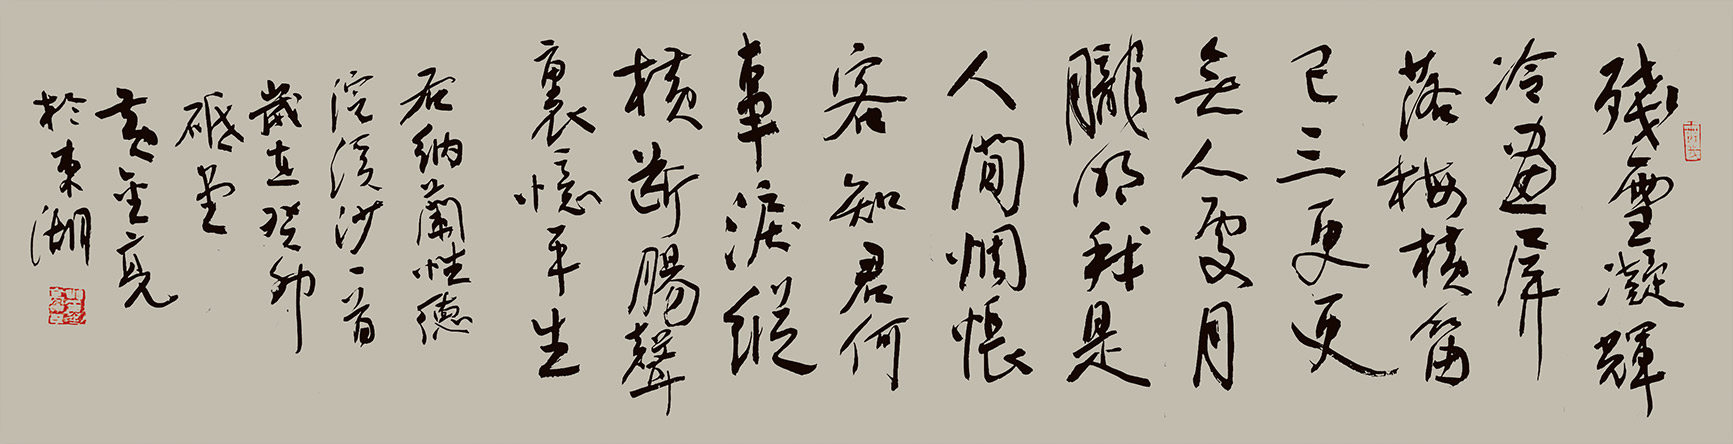 殘雪凝輝
冷畫屏
落梅橫笛
已三更更
無人處月
朧明我是
人間惆悵
客知君何
事淚縱
橫斷腸聲
裏憶平生
右納蘭性德
浣溪沙一首
歲在癸卯
砥堂
黃金亮
於東湖